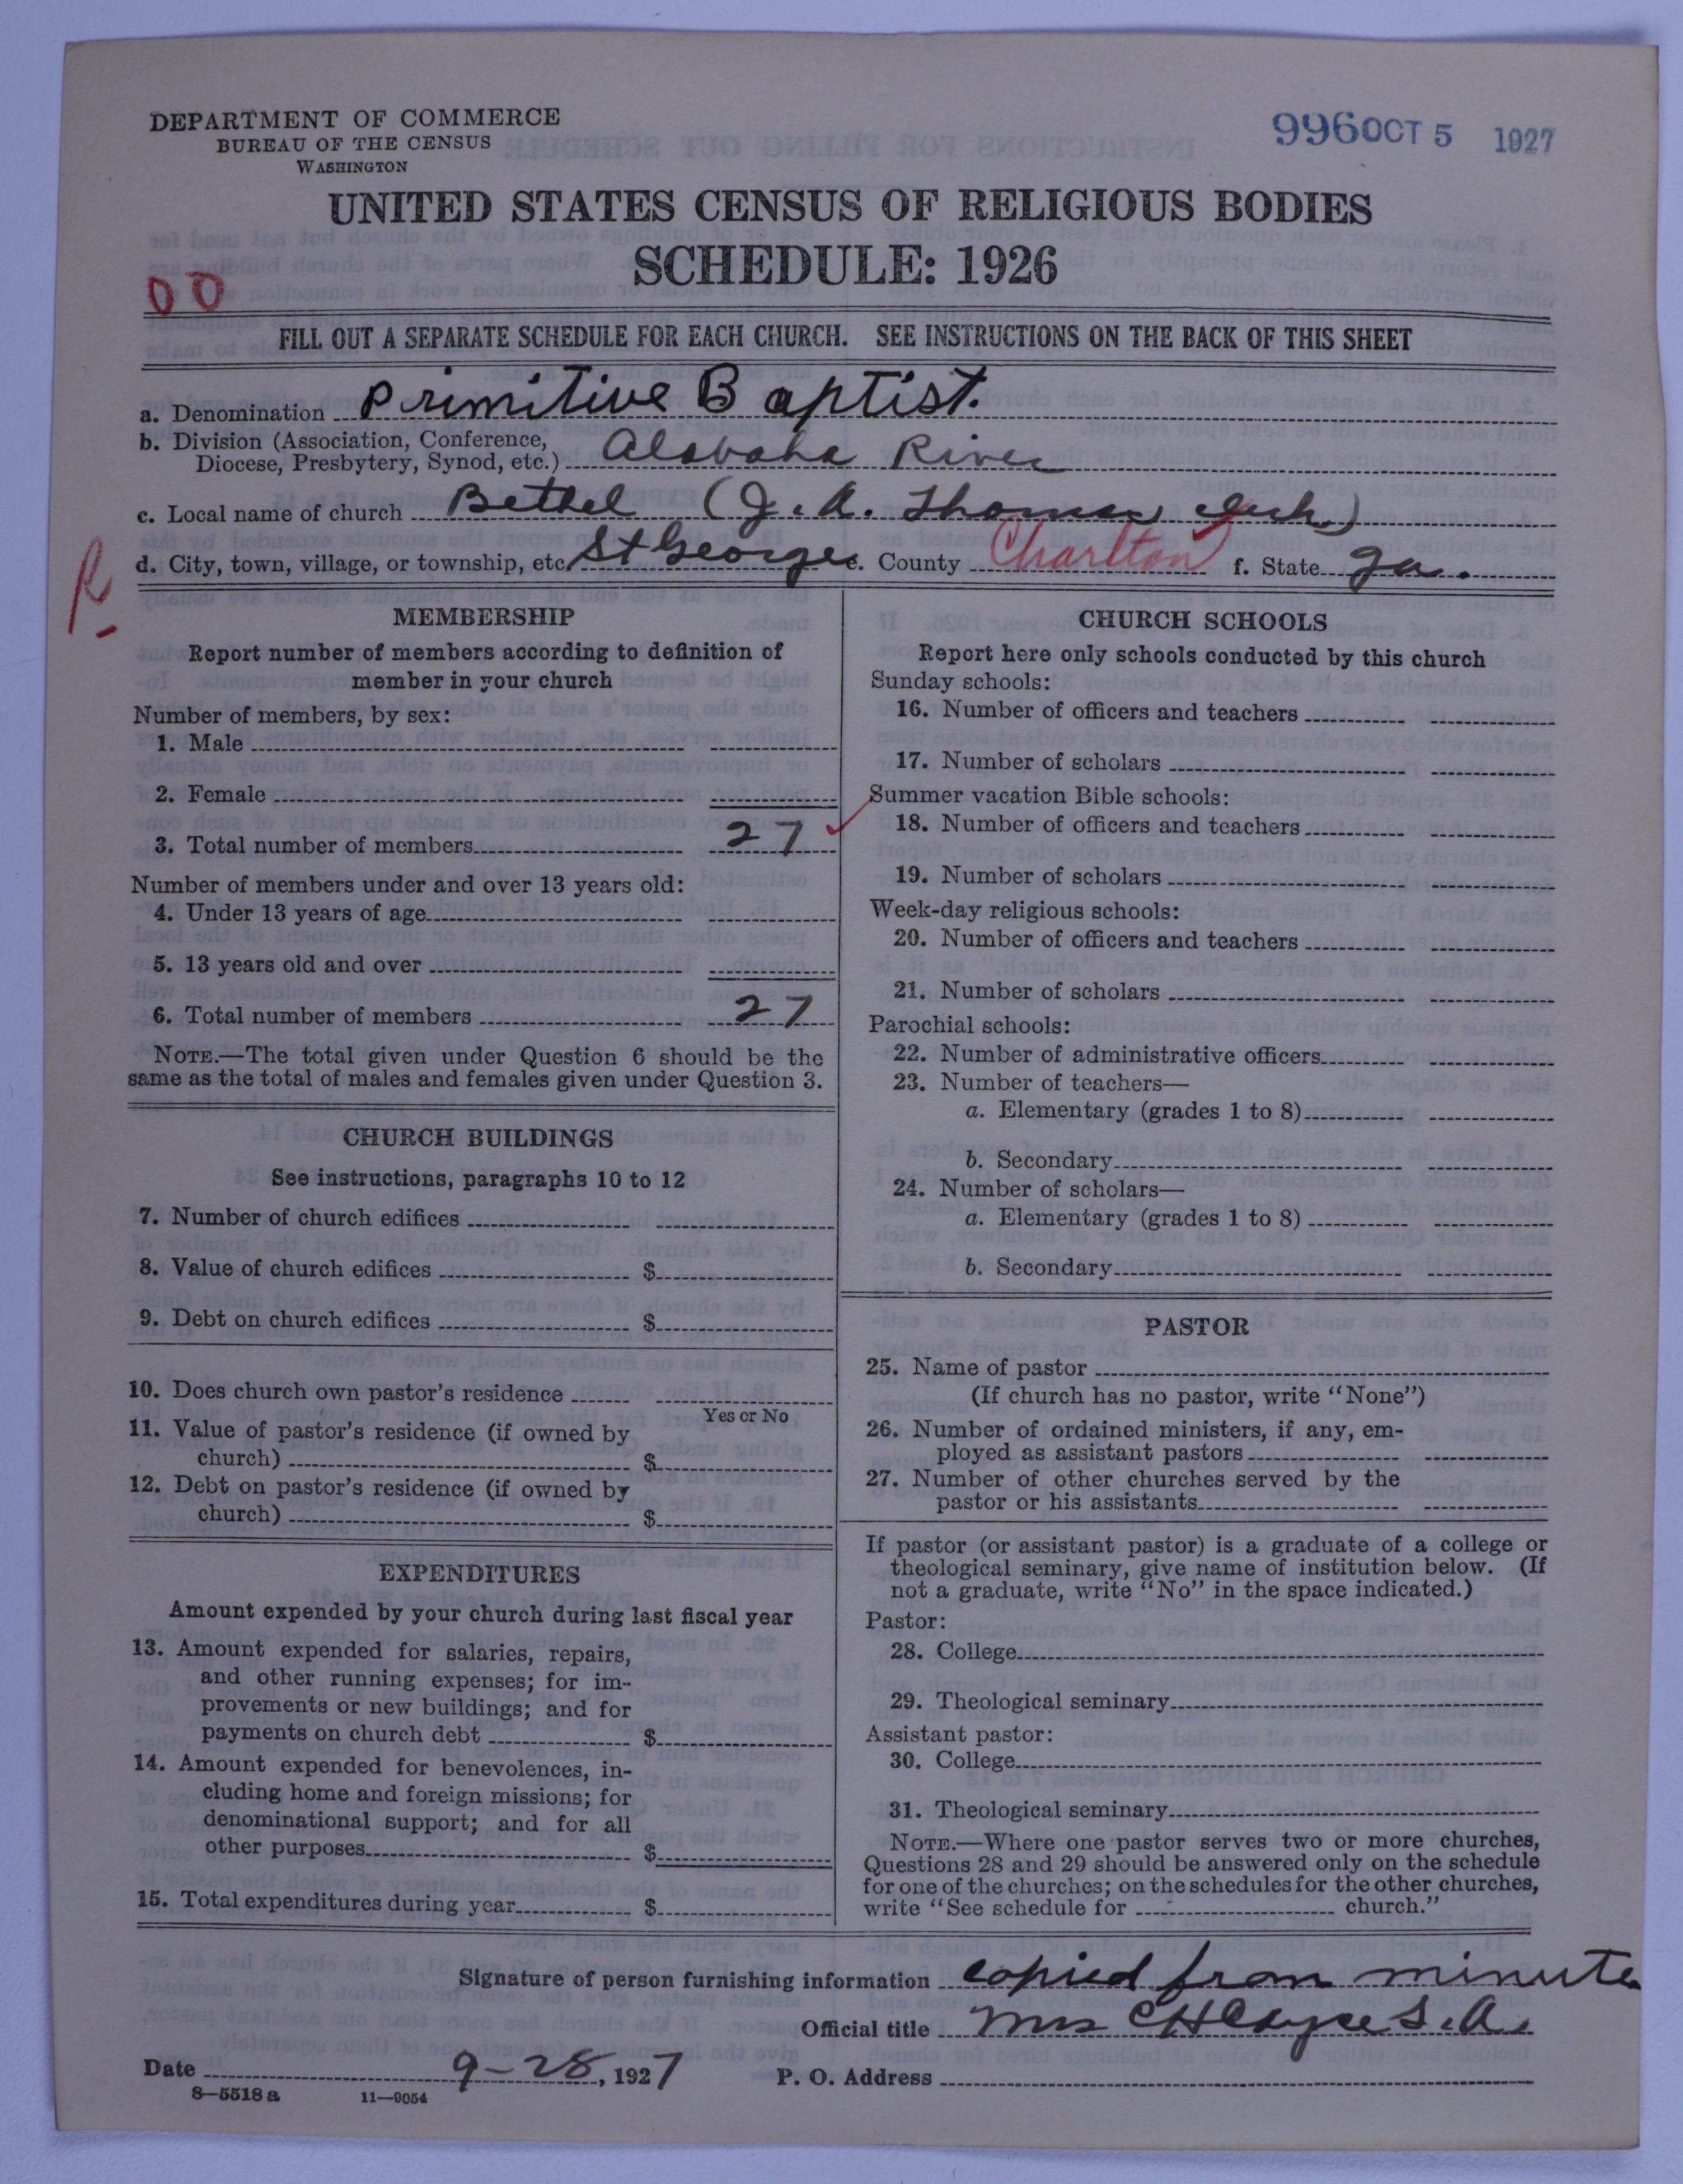 DEPARTMENT OF COMMERCE
BUREAU OF THE CENSUS
WASHINGTON
996 OCT 5 1927
UNITED STATES CENSUS OF RELIGIOUS BODIES
SCHEDULE: 1926
00
FILL OUT A SEPARATE SCHEDULE FOR EACH CHURCH. SEE INSTRUCTIONS ON THE BACK OF THIS SHEET
a. Denomination Primitive Baptist.
b. Division (Association, Conference,
Diocese, Presbytery, Synod, etc.) Alabaha River
c. Local name of church Bethel (J. A. Thomas, clerk)
d. City, town, village, or township, etc. St George e. County Charlton f. State Ga.
R
MEMBERSHIP
Report number of members according to definition of
member in your church
Number of members, by sex:
1. Male
2. Female
3. Total number of members 27
Number of members under and over 13 years old:
4. Under 13 years of age
5. 13 years old and over
6. Total number of members 27
NOTE.—The total given under Question 6 should be the
same as the total of males and females given under Question 3.
CHURCH BUILDINGS
See instructions, paragraphs 10 to 12
7. Number of church edifices
8. Value of church edifices $
9. Debt on church edifices $
10. Does church own pastor's residence
Yes or No
11. Value of pastor's residence (if owned by
church) $
12. Debt on pastor's residence (if owned by
church) $
EXPENDITURES
Amount expended by your church during last fiscal year
13. Amount expended for salaries, repairs,
and other running expenses; for im-
provements or new buildings; and for
payments on church debt $
14. Amount expended for benevolences, in-
cluding home and foreign missions; for
denominational support; and for all
other purposes $
15. Total expenditures during year $
CHURCH SCHOOLS
Report here only schools conducted by this church
Sunday schools:
16. Number of officers and teachers
17. Number of scholars
Summer vacation Bible schools:
18. Number of officers and teachers
19. Number of scholars
Week-day religious schools:
20. Number of officers and teachers
21. Number of scholars
Parochial schools:
22. Number of administrative officers
23. Number of teachers—
a. Elementary (grades 1 to 8)
b. Secondary
24. Number of scholars—
a. Elementary (grades 1 to 8)
b. Secondary
PASTOR
25. Name of pastor
(If church has no pastor, write "None")
26. Number of ordained ministers, if any, em-
ployed as assistant pastors
27. Number of other churches served by the
pastor or his assistants
If pastor (or assistant pastor) is a graduate of a college or
theological seminary, give name of institution below. (If
not a graduate, write "No" in the space indicated.)
Pastor:
28. College
29. Theological seminary
Assistant pastor:
30. College
31. Theological seminary
NOTE.—Where one pastor serves two or more churches,
Questions 28 and 29 should be answered only on the schedule
for one of the churches; on the schedules for the other churches,
write "See schedule for church."
Signature of person furnishing information copied from minutes
Official title Mrs C H Cayce S. A.
Date 9-28, 1927 P. O. Address
8—5518a 11—9054